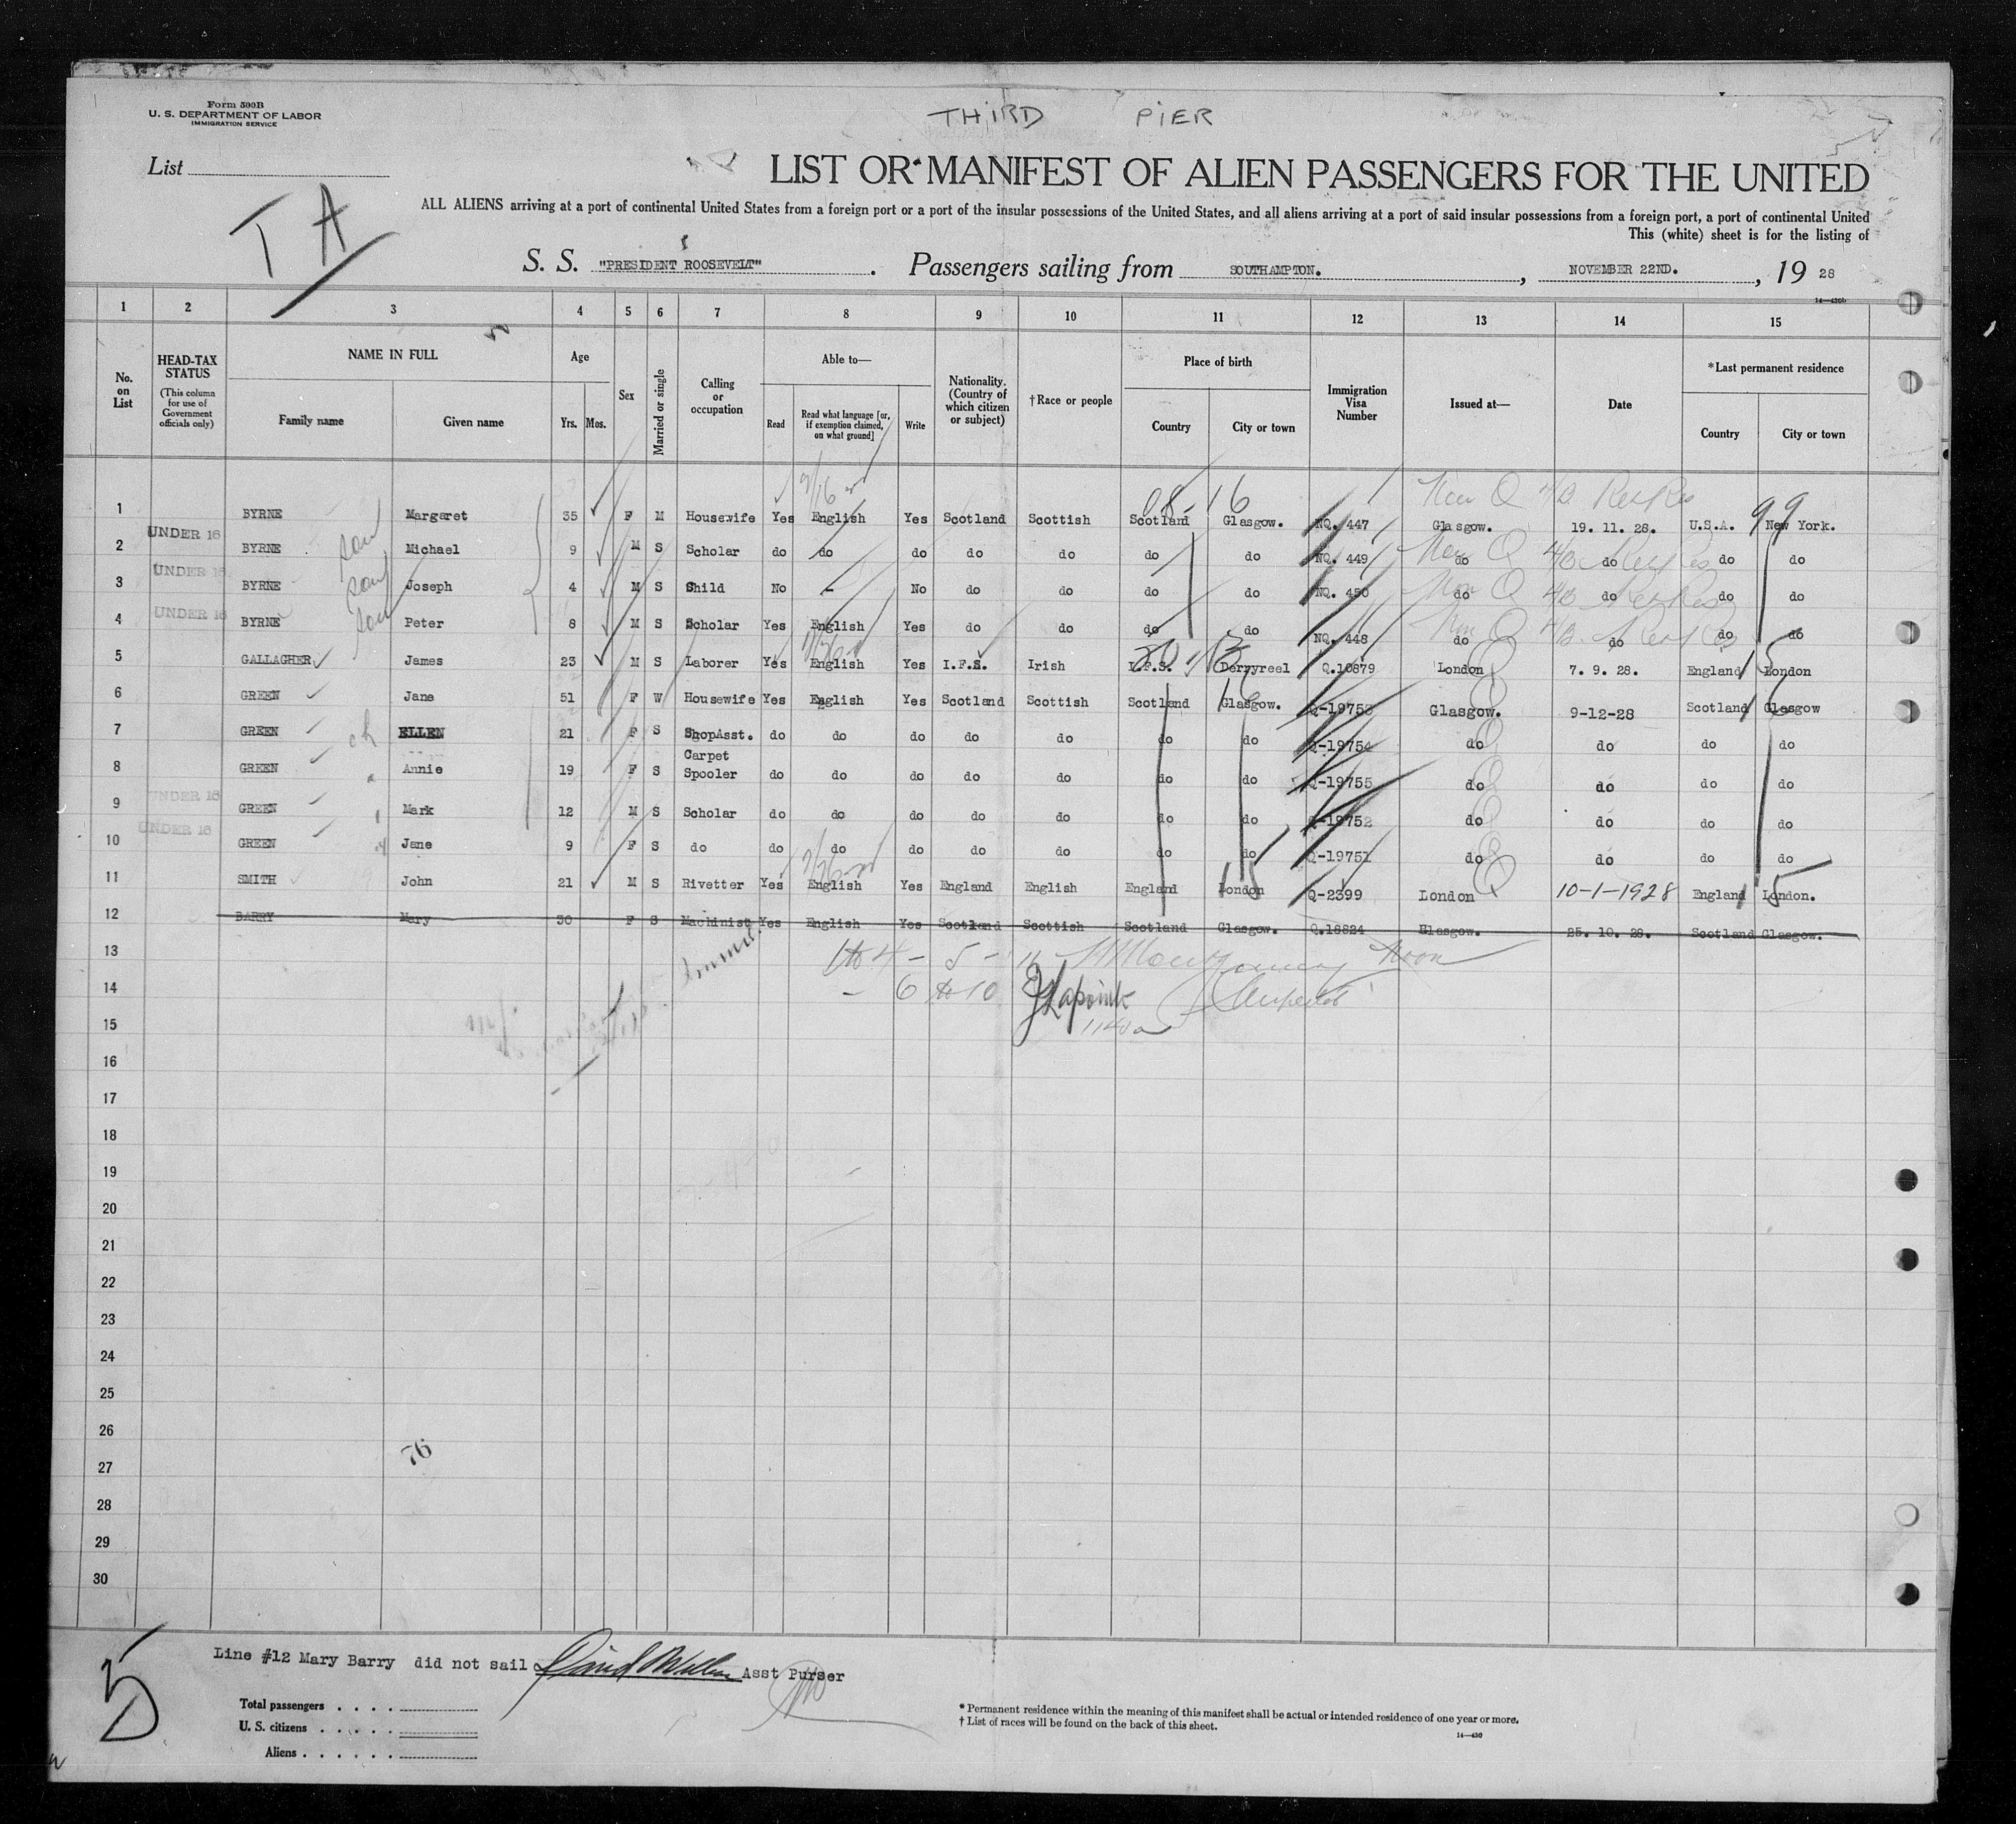 THIRD PIER
Form 500B
U. S. DEPARTMENT OF LABOR
IMMIGRATION SERVICE
List
TA
LIST OR MANIFEST OF ALIEN PASSENGERS FOR THE UNITED
ALL ALIENS arriving at a port of continental United States from a foreign port or a port of the insular possessions of the United States, and all aliens arriving at a port of said insular possessions from a foreign port, a port of continental United
This (white) sheet is for the listing of
S. S. "PRESIDENT ROOSEVELT". Passengers sailing from SOUTHAMPTON., NOVEMBER 22ND., 19 28
14—430b
1 2 3 4 5 6 7 8 9 10 11 12 13 14 15
No. on List
HEAD-TAX STATUS (This column for use of Government officials only)
NAME IN FULL Family name Given name
Age Yrs. Mos.
Sex
Married or single
Calling or occupation
Able to— Read Read what language [or, if exemption claimed, on what ground] Write
Nationality. (Country of which citizen or subject)
†Race or people
Place of birth Country City or town
Immigration Visa Number
Issued at—
Date
*Last permanent residence Country City or town
1 BYRNE Margaret 35 F M Housewife Yes English Yes Scotland Scottish Scotland Glasgow. NQ. 447 Glasgow. 19. 11. 28. U.S.A. New York.
UNDER 16
2 BYRNE son Michael 9 M S Scholar do do do do do do do NQ. 449 do do do do
UNDER 16
3 BYRNE son Joseph 4 M S Child No - No do do do do NQ. 450 do do do do
UNDER 16
4 BYRNE son Peter 8 M S Scholar Yes English Yes do do do do NQ. 448 do do do do
5 GALLAGHER James 23 M S Laborer Yes English Yes I.F.S. Irish I.F.S. Derryreel Q.10879 London 7. 9. 28. England London
6 GREEN Jane 51 F W Housewife Yes English Yes Scotland Scottish Scotland Glasgow. Q-19753 Glasgow. 9-12-28 Scotland Glasgow
7 GREEN ch ELLEN 21 F S ShopAsst. do do do do do do do Q-19754 do do do do
8 GREEN Annie 19 F S Carpet Spooler do do do do do do do Q-19755 do do do do
UNDER 16
9 GREEN Mark 12 M S Scholar do do do do do do do Q-19752 do do do do
UNDER 16
10 GREEN Jane 9 F S do do do do do do do do Q-19751 do do do do
11 SMITH John 21 M S Rivetter Yes English Yes England English England London Q-2399 London 10-1-1928 England London.
12 BARRY Mary 30 F S Machinist Yes English Yes Scotland Scottish Scotland Glasgow. Q.18824 Glasgow. 25. 10. 28. Scotland Glasgow.
13
14 6 to 10
15
16
17
18
19
20
21
22
23
24
25
26
76
27
28
29
30
5
Line #12 Mary Barry did not sail Asst Purser
Total passengers
U. S. citizens
Aliens
* Permanent residence within the meaning of this manifest shall be actual or intended residence of one year or more.
† List of races will be found on the back of this sheet.
14—430